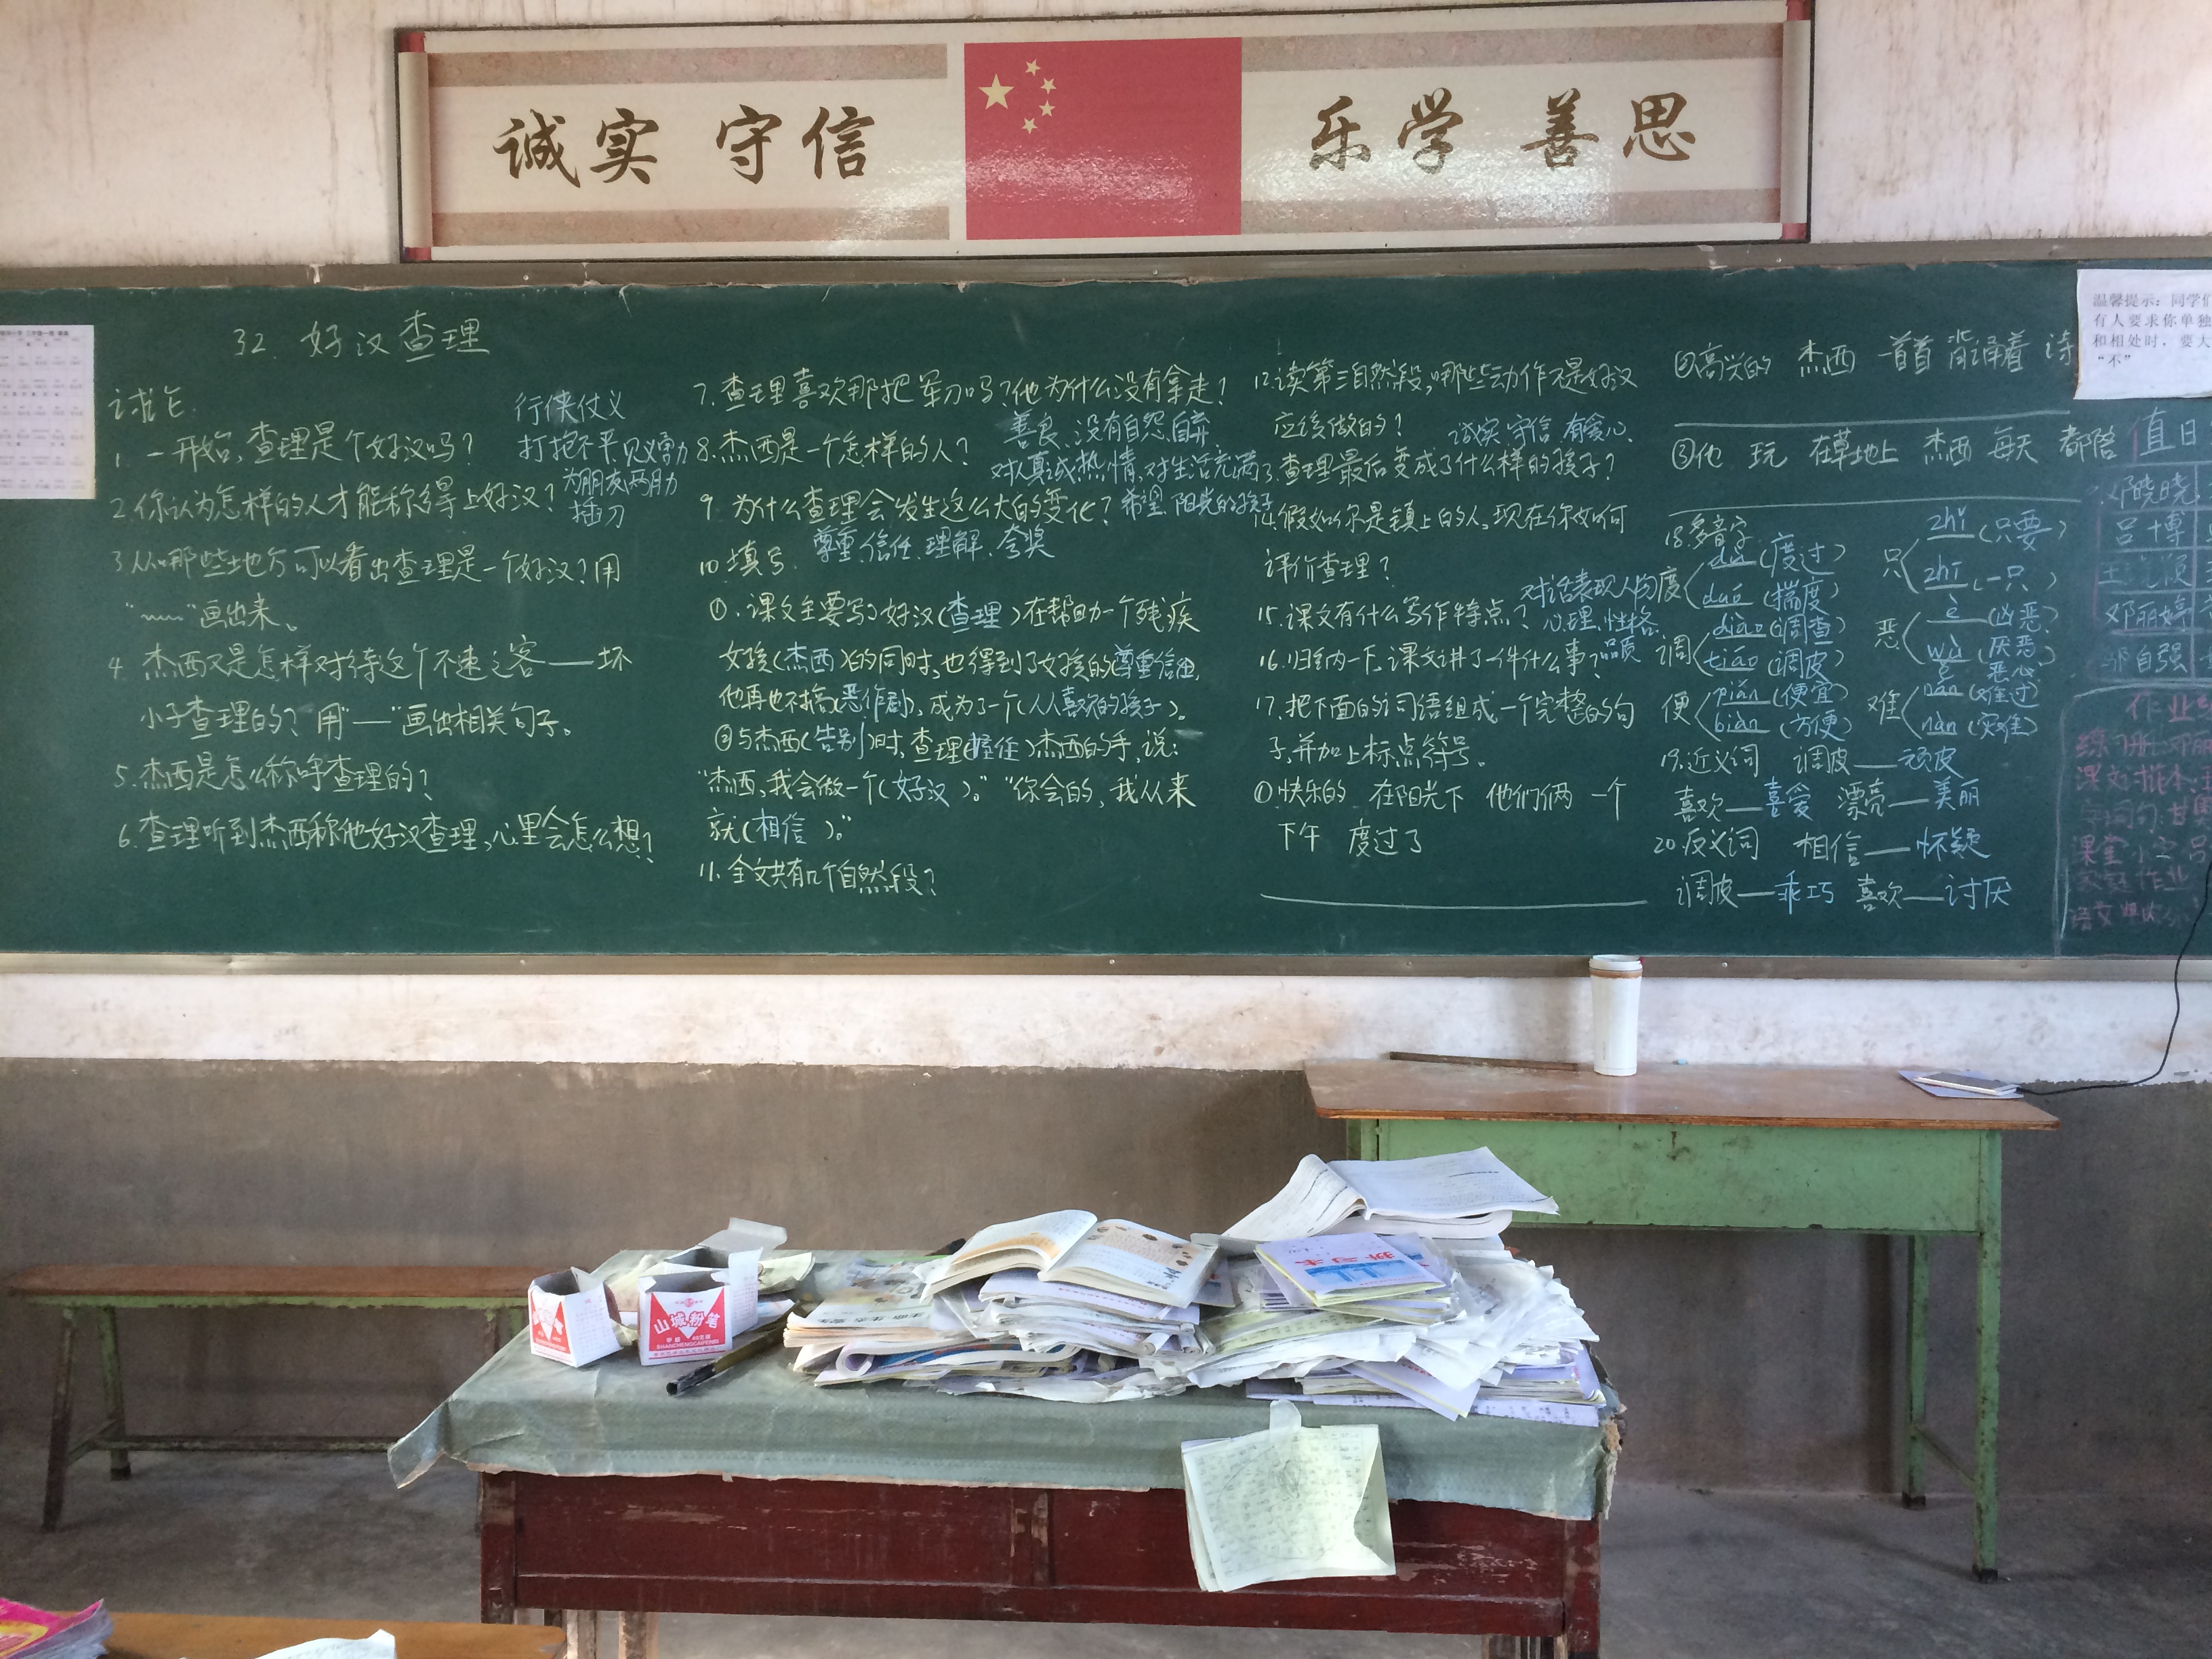 诚实 守信
乐学 善思
32. 好汉查理
讨论
1. 一开始，查理是个好汉吗？
行侠仗义
打抱不平 见义勇
为朋友两肋
插刀
2. 你认为怎样的人才能称得上好汉？
3. 从哪些地方可以看出查理是一个好汉？用
“﹏﹏”画出来。
4. 杰西又是怎样对待这个不速之客——坏
小子查理的？用“—”画出相关句子。
5. 杰西是怎么称呼查理的？
6. 查理听到杰西称他好汉查理，心里会怎么想？
7. 查理喜欢那把军刀吗？他为什么没有拿走？
善良、没有自怨自弃
8. 杰西是一个怎样的人？
对人真诚热情，对生活充满
希望 阳光的孩子
9. 为什么查理会发生这么大的变化？
尊重、信任、理解、夸奖
10. 填写
①. 课文主要写了好汉（查理）在帮助一个残疾
女孩（杰西）的同时，也得到了女孩的尊重信任，
他再也不搞（恶作剧），成为了一个（人人喜欢的孩子）。
②与杰西（告别）时，查理（握住）杰西的手，说：
“杰西，我会做一个（好汉）。”“你会的，我从来
就（相信）。”
11. 全文共有几个自然段？
12. 读第三自然段，哪些动作不是好汉
应该做的？
诚实 守信 有爱心.
13. 查理最后变成了什么样的孩子？
14. 假如你是镇上的人，现在你如何
评价查理？
对话表现人物
心理、性格、
品质
15. 课文有什么写作特点？
16. 归纳一下，课文讲了一件什么事？
17. 把下面的词语组成一个完整的句
子，并加上标点符号。
①快乐的 在阳光下 他们俩 一个
下午 度过了
②高兴的 杰西 一首首 背诵着 诗
③他 玩 在草地上 杰西 每天 都陪
18. 多音字
度 dù（度过）
duó（揣度）
只 zhǐ（只要）
zhī（一只）
调 diào（调查）
tiáo（调皮）
恶 è（凶恶）
wù（厌恶）
ě 恶心
便 pián（便宜）
biàn（方便）
难 nán（难过）
nàn（灾难）
19. 近义词 调皮——顽皮
喜欢——喜爱 漂亮——美丽
20. 反义词 相信——怀疑
调皮——乖巧 喜欢——讨厌
温馨提示：同学们
有人要求你单独
和相处时，要大
“不”
值日
邓晓晓
吕博
邓丽婷
邹自强
作业
练习册：
课文
课堂小
家庭作业
语文
山城粉笔
SHANCHENGCAIFENBI
练习本